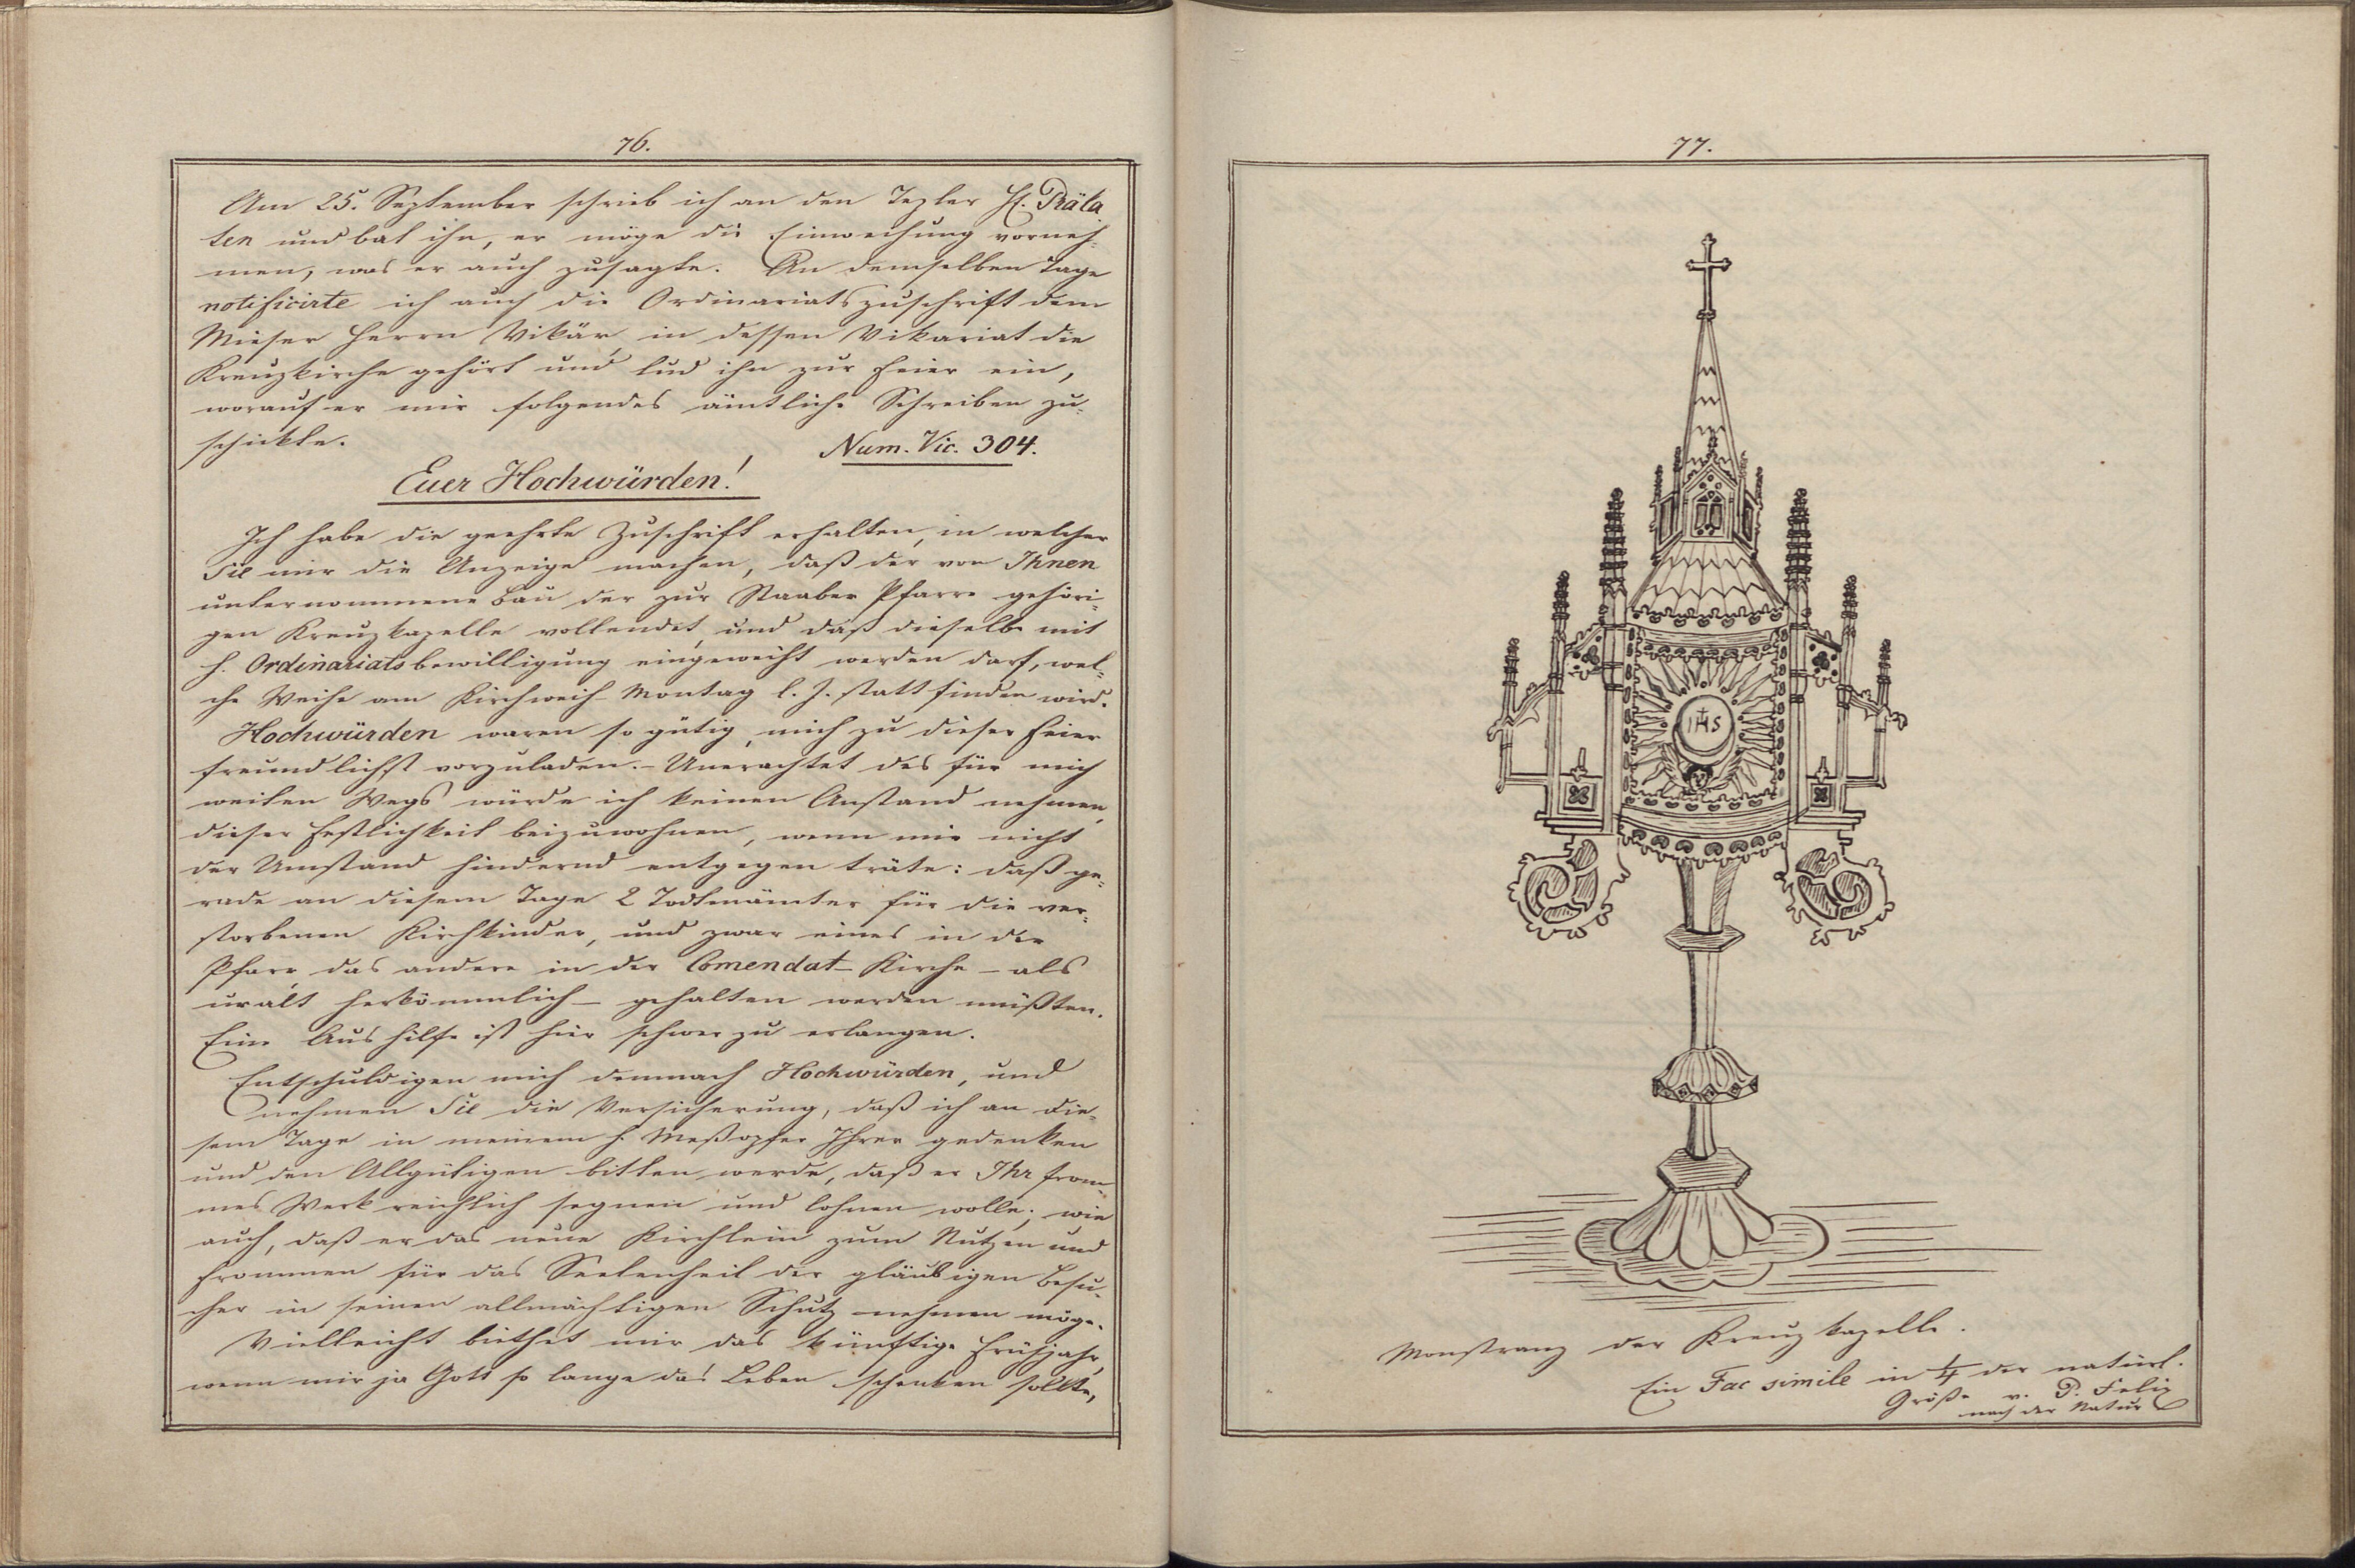 76.
Am 25. September schrieb ich an den Tepler H. Präla
ten und bat ihn, er möge die Einweihung vorneh-
men, was er auch zusagte. An demselben Tage
notificirte ich auch die Ordinariatszuschrift dem
Mieser Herrn Vikär, in dessen Vikariat die
Kreuzkirche gehört und lud ihn zur Feier ein,
worauf er mir folgendes ämtliche Schreiben zu-
schickte.
Num. Vic. 304.
Euer Hochwürden!
Ich habe die geehrte Zuschrift erhalten, in welcher
Sie mir die Anzeige machen, daß der von Ihnen
unternommene Bau der zur Staaber Pfarre gehöri-
gen Kreuzkapelle vollendet, und daß dieselbe mit
h. Ordinariatsbewilligung eingeweiht werden darf, wel-
che Weihe am Kirchweih-Montag l. J. statt finden wird.
Hochwürden waren so gütig, mich zu dieser Feier
freundlichst vorzuladen. – Unerachtet des für mich
weiten Wegs würde ich keinen Anstand nehmen,
dieser Festlichkeit beizuwohnen, wenn mir nicht
der Umstand hindernd entgegen träte: daß ge-
rade an diesem Tage 2 Todtenämter für die ver-
storbenen Kirchkinder, und zwar eines in der
Pfarr, das andere in der Comendat-Kirche – als
uralt herkömmlich – gehalten werden müßten.
Eine Aushilfe ist hier schwer zu erlangen.
Entschuldigen mich demnach Hochwürden, und
nehmen Sie die Versicherung, daß ich an die-
sem Tage in meinem h. Meßopfer Ihrer gedenken
und den Allgütigen bitten werde, daß er Ihr from-
mes Werk reichlich segnen und lohnen wolle; wie
auch, daß er das neue Kirchlein zum Nutzen und
Frommen für das Seelenheil der gläubigen Besu-
cher in seinen allmächtigen Schutz nehmen möge.
Vielleicht biethet mir das künftige Frühjahr,
wenn mir ja Gott so lange das Leben schenken sollte,
77.
IHS
Monstranz der Kreuzkapelle.
Ein Fac simile in 1/4 der natürl.
Größe v. P. Felix
nach der Natur